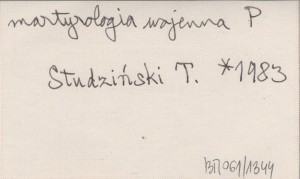 martyrologia wojenna P
Studziński T. *1983
BП061/1344